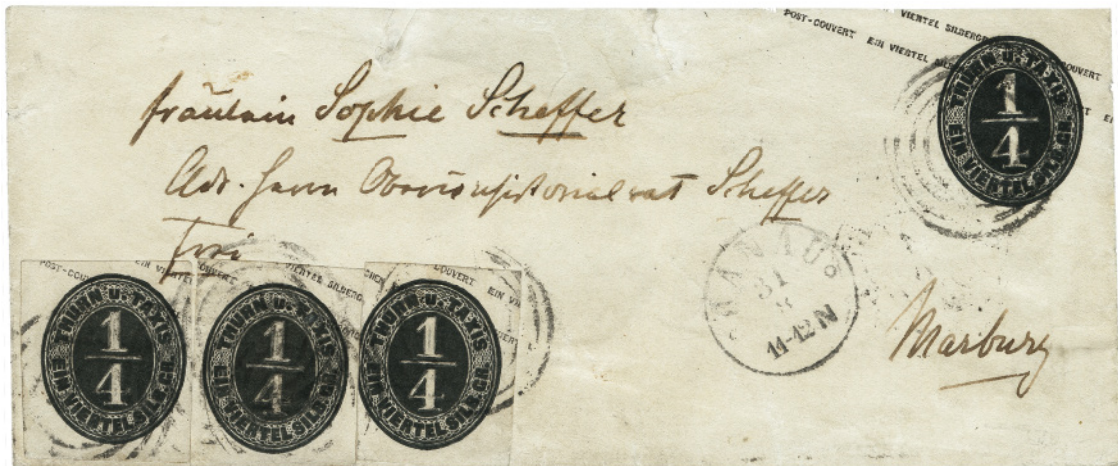 POST-COUVERT EIN VIERTEL SILBERGR
VIERTEL SILBERGR
COUVERT
THURN U. TAXIS
1/4
EIN VIERTEL SILB. GR.
fräulein Sophie Scheffer
Adr. Herrn Oberconsistorialrat Scheffer
frei
HANAU
31
11-12 N
Marburg
POST-COU EIN VIERTEL
COUVERT VIERTEL SILBERG
COUVERT EIN VI
THURN U. TAXIS
1/4
EIN VIERTEL SILB. GR.
THURN U. TAXIS
1/4
EIN VIERTEL SILB. GR.
THURN U. TAXIS
1/4
EIN VIERTEL SILB. GR.